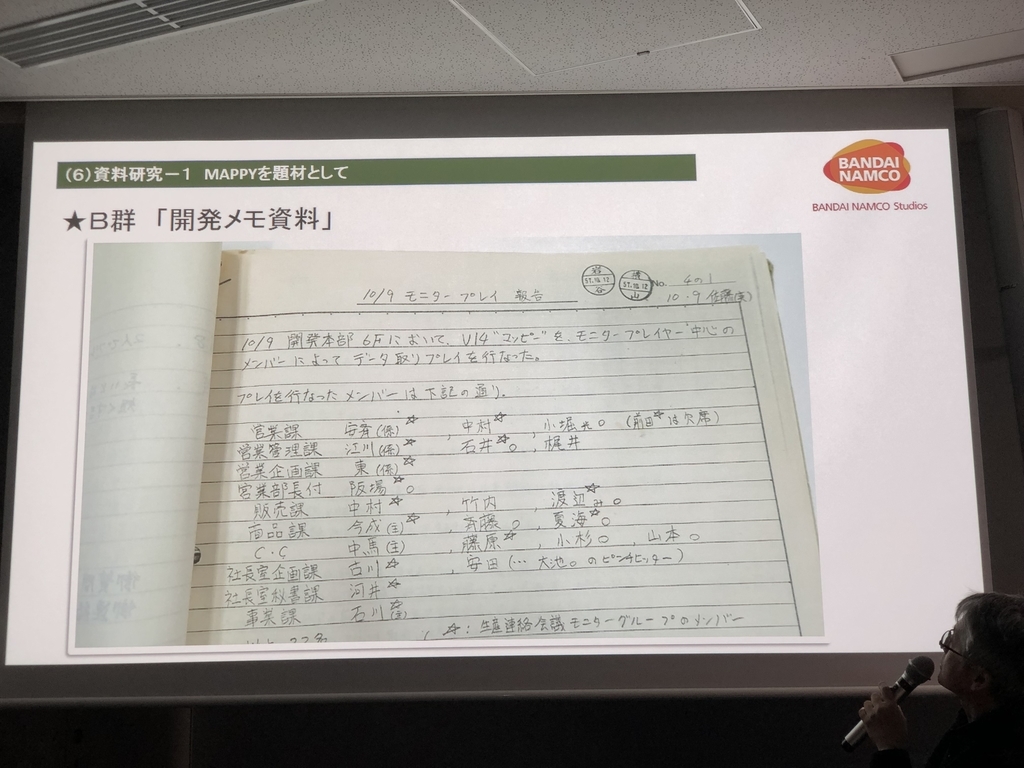 (6)資料研究－1 MAPPYを題材として
BANDAI
NAMCO
BANDAI NAMCO Studios
★B群 「開発メモ資料」
岩 57.10.12 谷
57.10.12 山
No. 4の1
10/9 モニタープレイ 報告
10.9
10/9 開発本部 6Fにおいて、V14"マッピー"を、モニタープレイヤー中心の
メンバーによって データ取りプレイを行なった。
プレイを行なったメンバーは下記の通り。
営業課 安斉(係)☆ , 中村☆ , 小堀 ○ (前田☆は欠席)
営業管理課 江川(係)☆ , 石井☆○ , 梶井
営業企画課 東(係)☆
営業部長付 阪場☆○
販売課 中村☆ , 竹内 , 渡辺☆み○
商品課 今成(主)☆ , 斉藤○ , 夏海☆○
C.C 中馬(主) , 藤原☆ , 小杉○ , 山本○
社長室企画課 古川☆ , 安田(… 大池○のピンチヒッター)
社長室秘書課 河井☆
事業課 石川☆(主)
以上 22名
☆:生産連絡会議モニターグループのメンバー